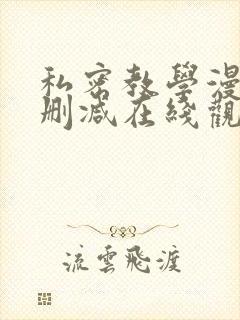 私密教學漫
删减在綫觀
流雲飛渡